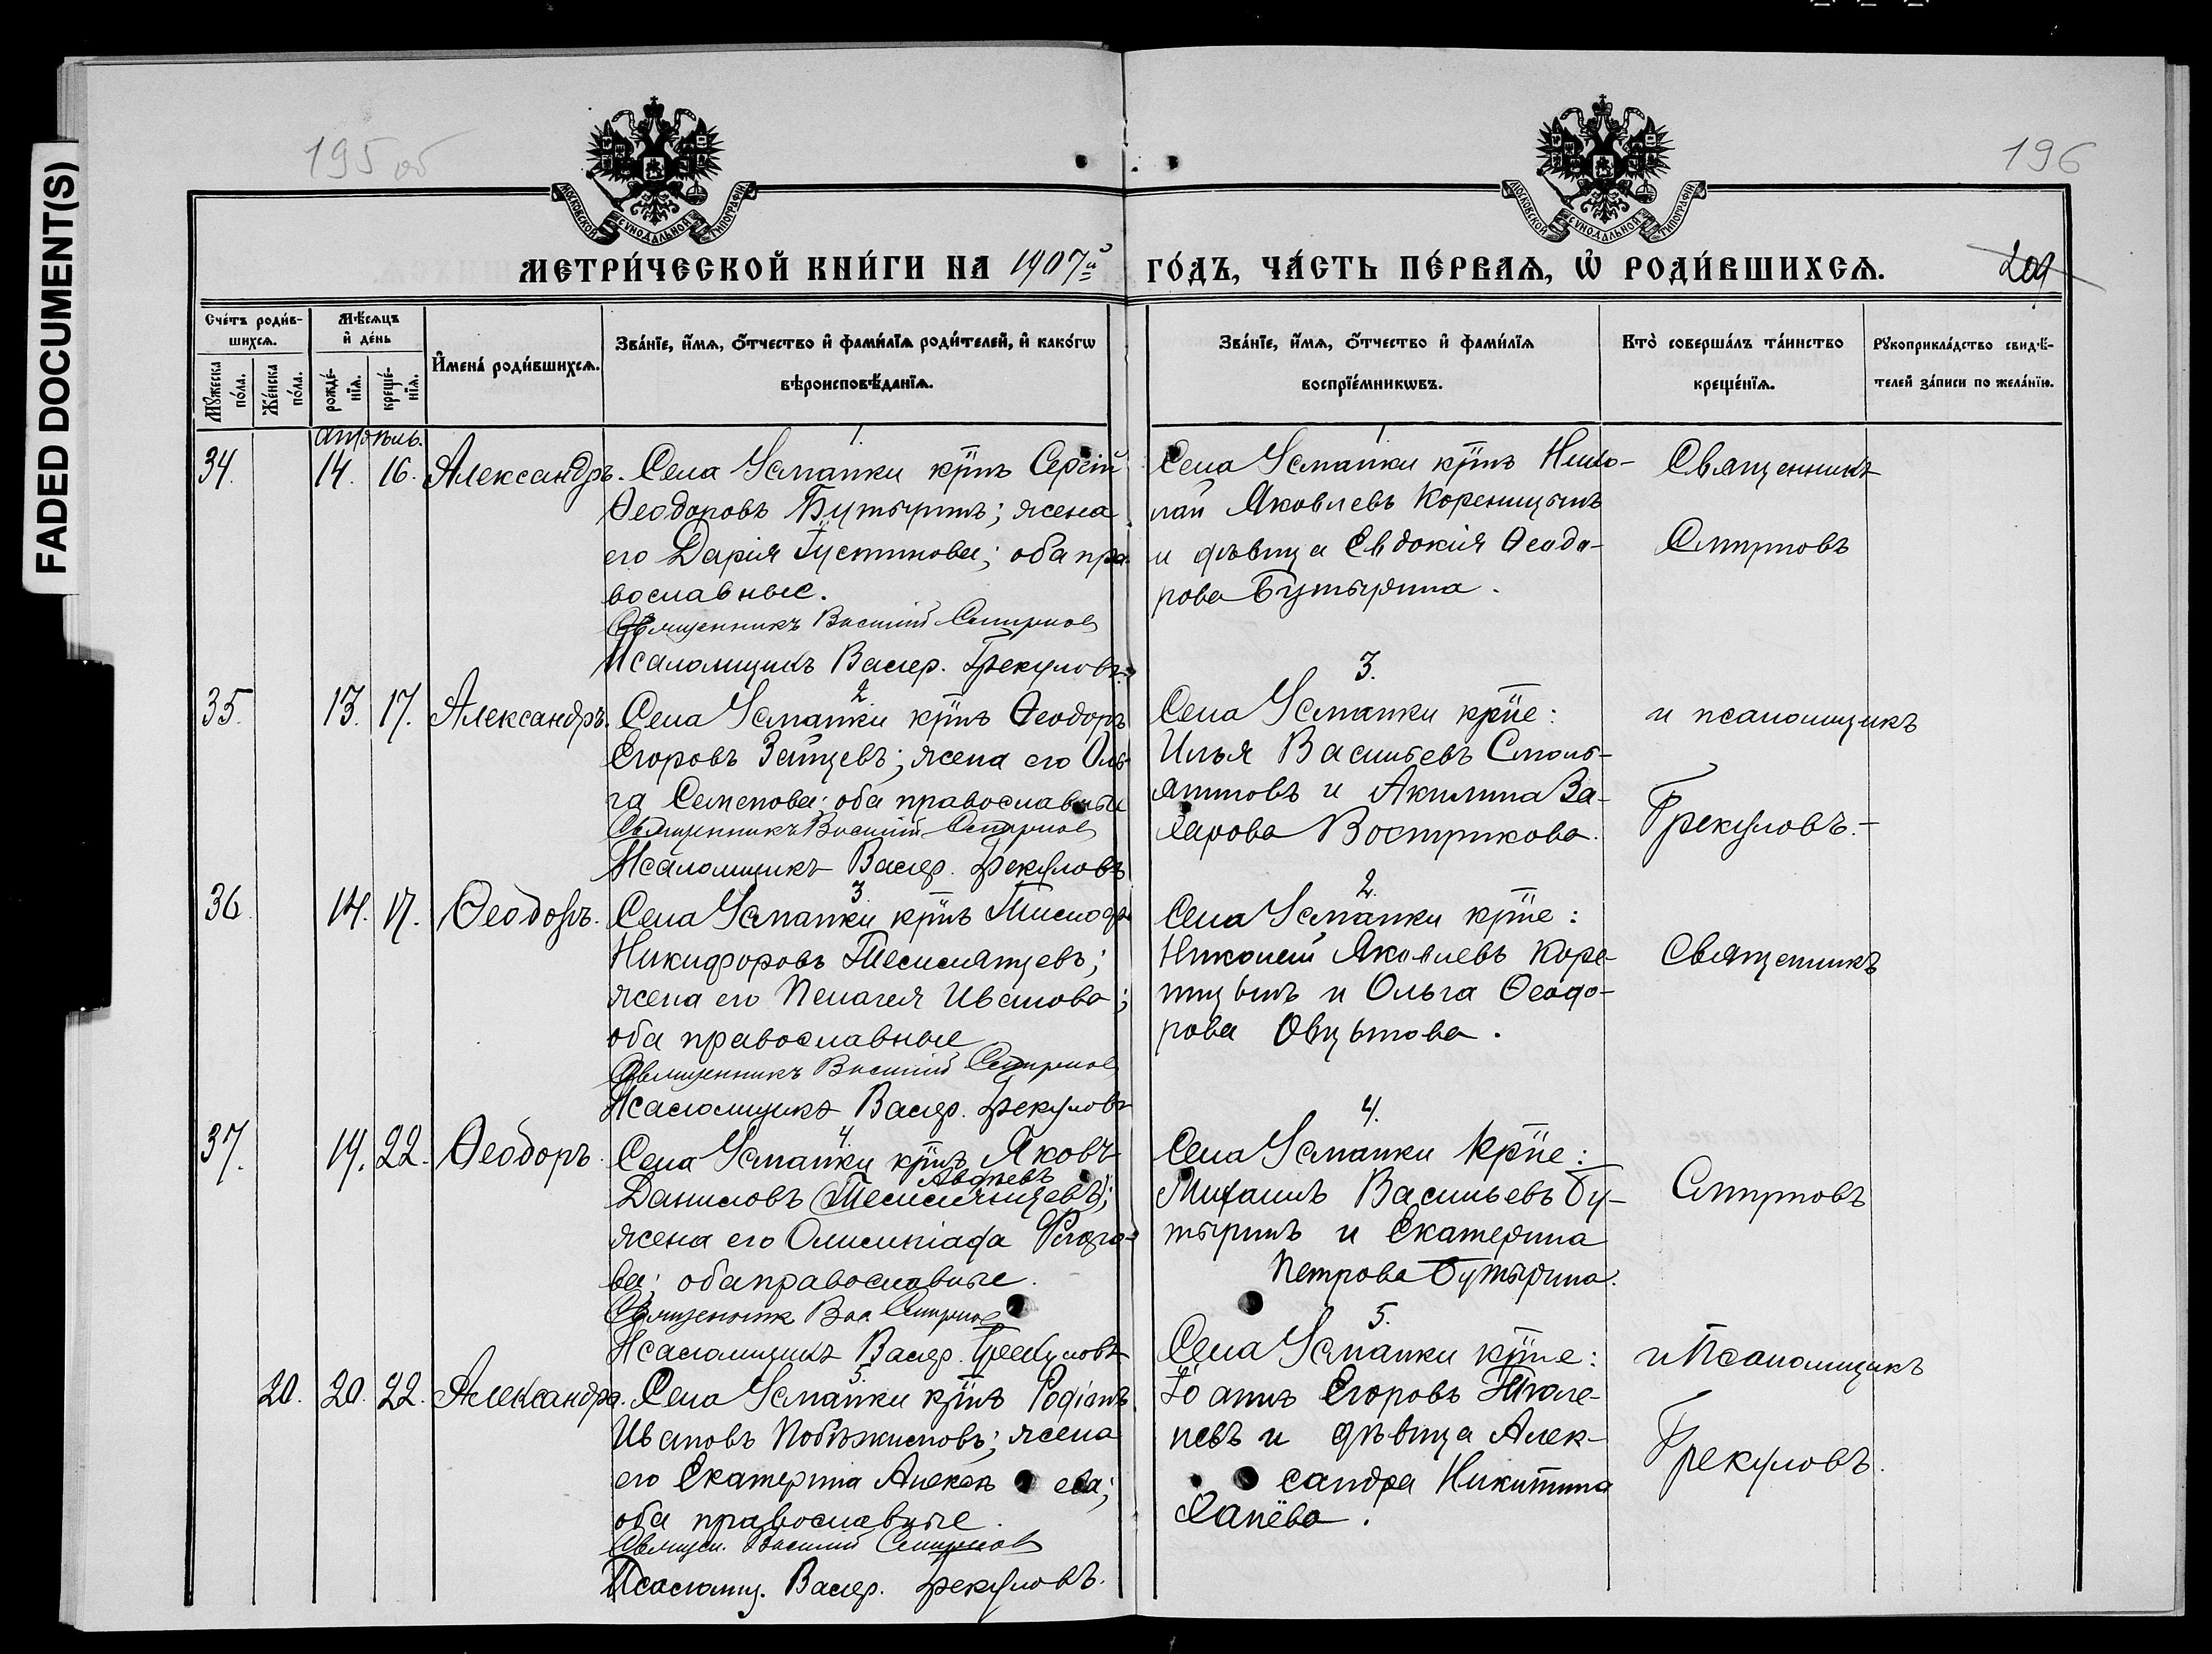 FADED DOCUMENT(S)
195 об
196
МОСКОВСКОЙ СѴНОДАЛЬНОЙ ТИПОГРАФІИ
МОСКОВСКОЙ СѴНОДАЛЬНОЙ ТИПОГРАФІИ
МЕТРИ́ЧЕСКОЙ КНИ́ГИ НА 1907й
ГО́ДЪ, ЧА́СТЬ ПЕ́РВАѦ, Ѡ҆ РОДИ́ВШИХСѦ.
209
Сче́тъ роди́в-
шихсѧ.
Мꙋ́жеска по́ла.
Же́нска по́ла.
Мѣ́сѧцъ
и҆ де́нь
рожде́-
нїѧ.
креще́-
нїѧ.
И҆мена̀ роди́вшихсѧ.
Зва́нїе, и҆́мѧ, ѻ҆́тчество и҆ фами́лїѧ роди́телей, и҆ како́гѡ
вѣроисповѣ́данїѧ.
Зва́нїе, и҆́мѧ, ѻ҆́тчество и҆ фами́лїѧ
воспрїе́мникѡвъ.
Кто̀ соверша́лъ та́инство
креще́нїѧ.
Рꙋкоприкла́дство свидѣ́-
телей за́писи по жела́нїю.
апрѣль.
34. 14. 16. Александръ.
1.
Села Усманки крїнъ Сергій
Ѳеодоровъ Бутыринъ; жена
его Дарія Іустинова; оба пра-
вославные.
Священникъ Василій Смирнов
Псаломщикъ Валер. Грекуловъ
1.
Села Усманки крїнъ Нико-
лай Яковлевъ Кореницынъ
и дѣвица Евдокія Ѳеодо-
рова Бутырина.
Священникъ
Смирновъ
35. 13. 17. Александръ.
2.
Села Усманки крїнъ Ѳеодоръ
Егоровъ Зайцевъ; жена его Оль-
га Семенова; оба православные
Священникъ Василій Смирнов
Псаломщикъ Валер. Грекуловъ
3.
Села Усманки крїне:
Илья Васильевъ Столь-
янниовъ и Акилина За-
харова Вострикова.
и псаломщикъ
Грекуловъ.-
36. 14. 17. Ѳеодоръ.
3.
Села Усманки крїнъ Тимоф.
Никифоровъ
жена его Пелагея Иванова;
оба православные
Священникъ Василій Смирнов
Псаломщикъ Валер. Грекуловъ
2.
Села Усманки крїне:
Николай Яковлевъ Коре-
ницынъ и Ольга Ѳеодо-
рова Овцынова.
Священникъ
37. 19. 22. Ѳеодоръ.
4.
Села Усманки крїнъ Яковъ
Авдѣевъ
Даниловъ
жена его Олимпіада
ва; оба православные.
Священник Вас. Смирнов
Псаломщикъ Валер. Грекуловъ
4.
Села Усманки крїне:
Михаилъ Васильевъ Бу-
тыринъ и Екатерина
Петрова Бутырина.
Смирновъ
20. 20. 22. Александра.
5.
Села Усманки крїнъ Родіонъ
Ивановъ Побѣжимовъ; жена
его Екатерина Алексѣева;
оба православные.
Священ. Василій Смирнов
Псаломщ. Валер. Грекуловъ.
5.
Села Усманки крїне:
Іоаннъ Егоровъ
невъ и дѣвица Алек-
сандра Никитина
Ханёва.
и Псаломщикъ
Грекуловъ.